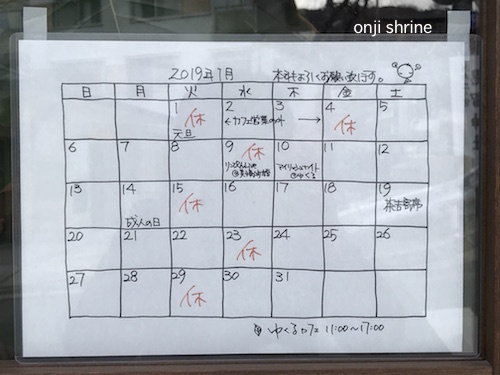 onji shrine
2019年1月
本年もよろしくお願い致します。
日 月 火 水 木 金 土
1 2 3 4 5
休 休
元旦 ←カフェ営業のみ→
6 7 8 9 10 11 12
休
13 14 15 16 17 18 19
休
成人の日
20 21 22 23 24 25 26
休
27 28 29 30 31
休
ゆくるカフェ 11:00〜17:00